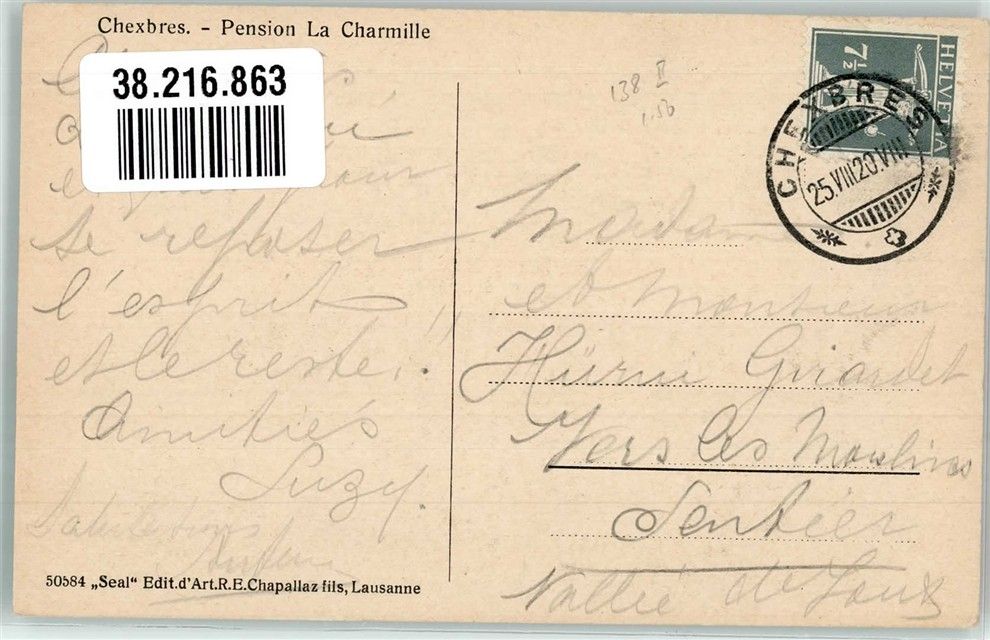 Chexbres. - Pension La Charmille
38.216.863
pour
se reposer
l'esprit
et le reste!.
Amitiés
Suzy.
Salutations
50584 „Seal“ Edit.d'Art.R.E.Chapallaz fils, Lausanne
138 II
1.50
HELVETIA
7½
CHEXBRES
25.VIII.20.VIII
Madame
et Monsieur
Hürni Girardet
Vers les Moulins
Sentier
Vallée de Joux